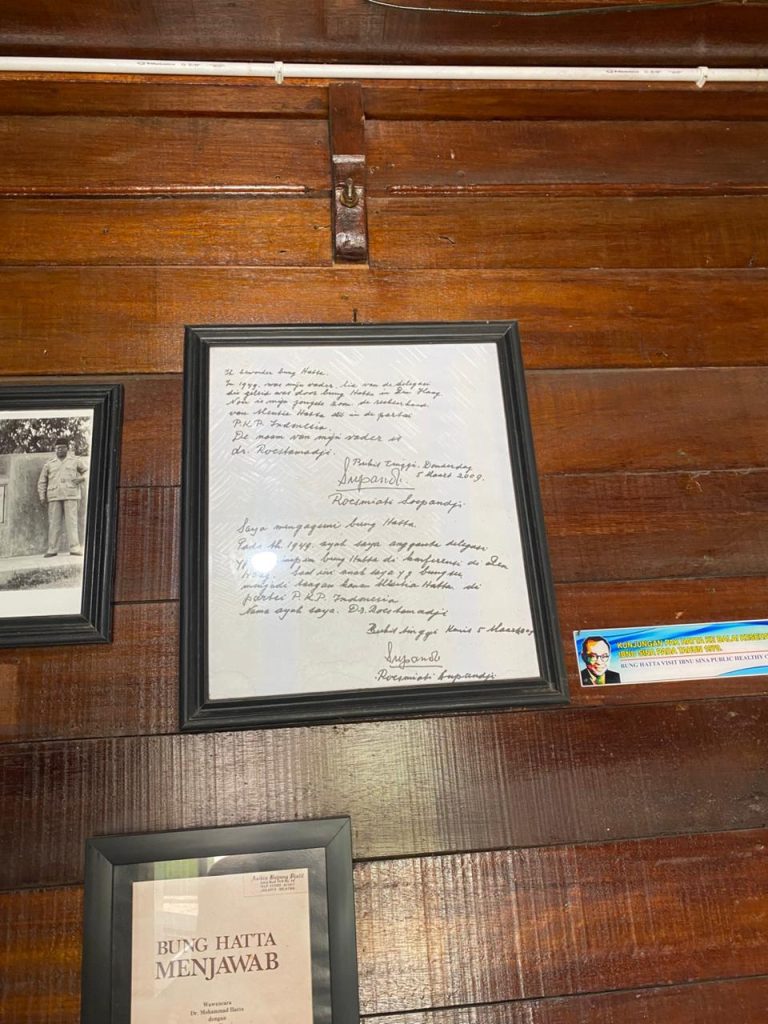 Ik bewonder bung Hatta.
In 1949 was mijn vader lid van de delegasi
die geleid was door bung Hatta in Den Haag
Nou is mijn jongste zoon de rechterhand
van Meutia Hatta dit in de partai
P.K.P. Indonesia.
De naam van mijn vader is
dr. Roestamadji.
Bukit Tinggi, Donderdag
5 Maart 2009.
Roesmiati Soepandji
Saya mengagumi bung Hatta.
Pada th. 1949 ayah saya anggauta delegasi
bung Hatta di konferensi di Den
Haag. Saat ini anak saya yg bungsu
menjadi tangan kanan Meutia Hatta di
partei P.K.P. Indonesia
Nama ayah saya. Dr. Roestamadji
Bukit tinggi Kamis 5 Maart
Roesmiati Supandji
KUNJUNGAN BUNG HATTA KE BALAI
IBNU SINA PADA TAHUN
BUNG HATTA VISIT IBNU SINA PUBLIC HEALTHY
BUNG HATTA
MENJAWAB
Wawancara
Dr. Mohammad Hatta
dengan